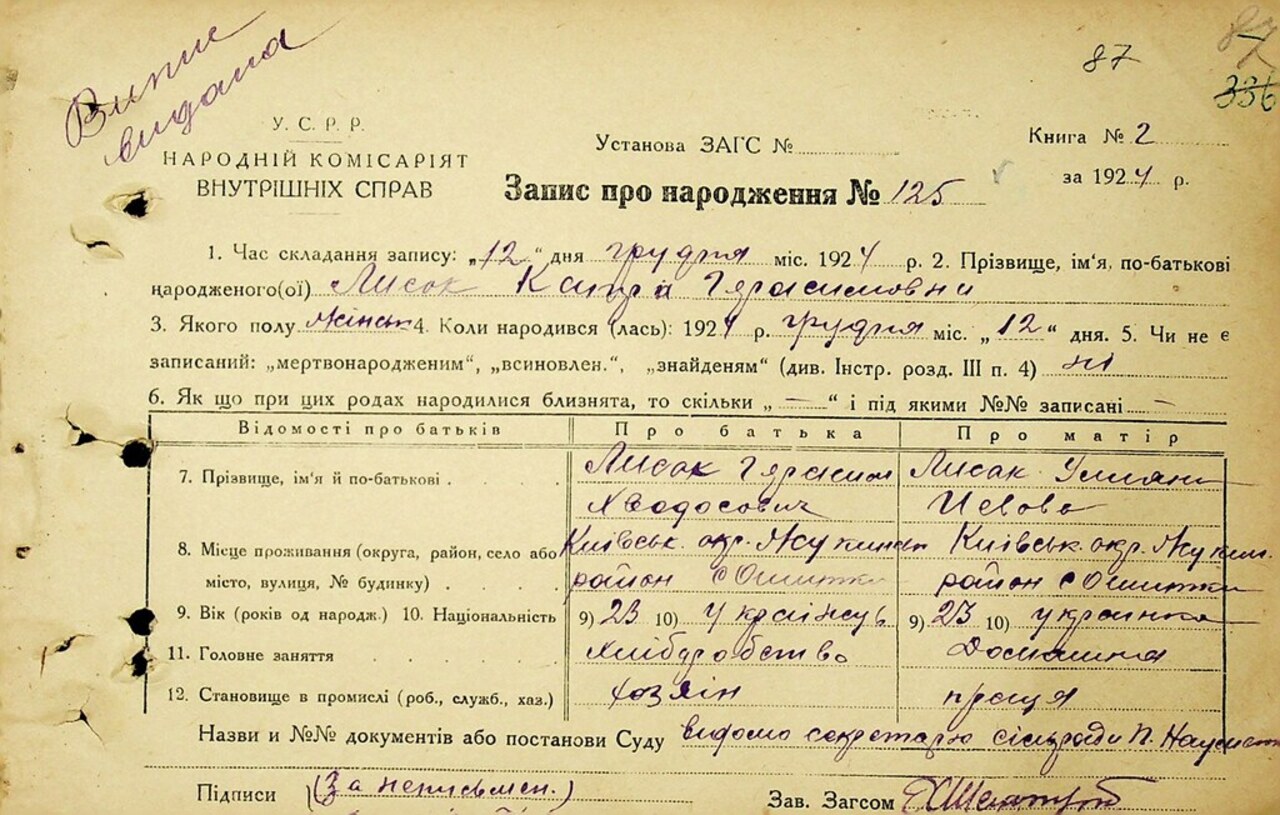 87
336
Випис
видана
У. С. Р. Р.
НАРОДНІЙ КОМІСАРІЯТ
ВНУТРІШНІХ СПРАВ
Установа ЗАГС №
Книга № 2
за 1924 р.
Запис про народження № 125
1. Час складання запису: „12“ дня грудня міс. 1924 р. 2. Прізвище, ім'я, по-батькові
народженого(ої) Лисак Герасимовни
3. Якого полу жінськ 4. Коли народився (лась): 1924 р. грудня міс. „12“ дня. 5. Чи не є
записаний: „мертвонародженим“, „всиновлен.“, „знайденям“ (див. Інстр. розд. III п. 4) ні
6. Як що при цих родах народилися близнята, то скільки „—“ і під якими №№ записані —
Відомості про батьків Про батька Про матір
7. Прізвище, ім'я й по-батькові Лисак Герасим Лисак Уляна
Хводосович
8. Місце проживання (округа, район, село або Київськ. окр. Жукинськ Київськ. окр. Жукин.
місто, вулиця, № будинку) район с Ошитки район с Ошитки
9. Вік (років од народж.) 10. Національність 9) 23 10) українець 9) 23 10) украинка
11. Головне заняття хліборобство Домашня
12. Становище в промислі (роб., служб., хаз.) хозяін праця
Назви и №№ документів або постанови Суду видомо секретарю сільради П.
Підписи (За неписьмен.) Зав. Загсом